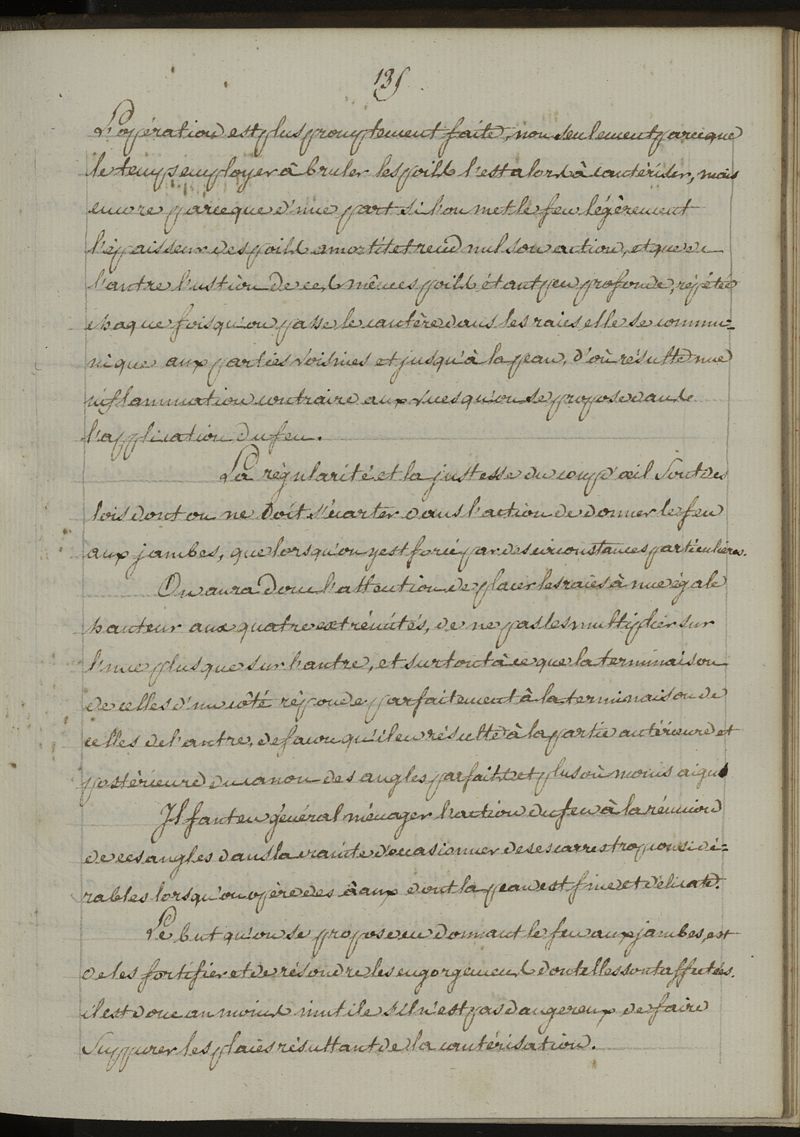 135
L'opération est plus promptement faite, non seulement parceque
le temps employer à bruler les poils l'est alors à cautériser, mais
encore parceque d'une part si l'on met le feu légèrement
l'épaisseur des poils amortit et rend nul son action, et que de
l'autre l'ustion de ces mêmes poils étant peu profonde, répétée
chaque fois qu'on passe le cautère dans les raies elle se commu=
nique aux parties voisines et jusqu'à la peau, d'où résulte une
inflammation contraire aux vues qu'on se propose dans
l'application du feu.
La régularité et la justesse du coup d'œil sont des
lois dont on ne doit s'écarter dans l'action de donner le feu
aux jambes, que lorsqu'on y est forcé par des circonstances particulières.
On aura donc l'attention de placer les raies à une égale
hauteur aux quatre extrémités, de ne pas les multiplier sur
l'une plus que sur l'autre, et surtout à ce que la terminaison
de celles d'un côté réponde parfaitement à la terminaison de
celles de l'autre, de facon qu'il en résulte à la partie antérieure et
postérieure du canon des angles parfaits et plus où moins aigus
Il faut en général ménager l'action du feu à la réunion
de ces angles dans la crainte d'occasionner des escarres trop consi dé=
rables lorsqu'on opère des aux dont la peau est fine et délicate.
Le but qu'on se propose en donnant le feu aux jambes, est
de les fortifier et de résoudre les engorgements dont elles sont affectées.
il est donc au moins inutile s'il n'est pas dangereux de faire
suppurer les plaies résultant de la cautérisation.